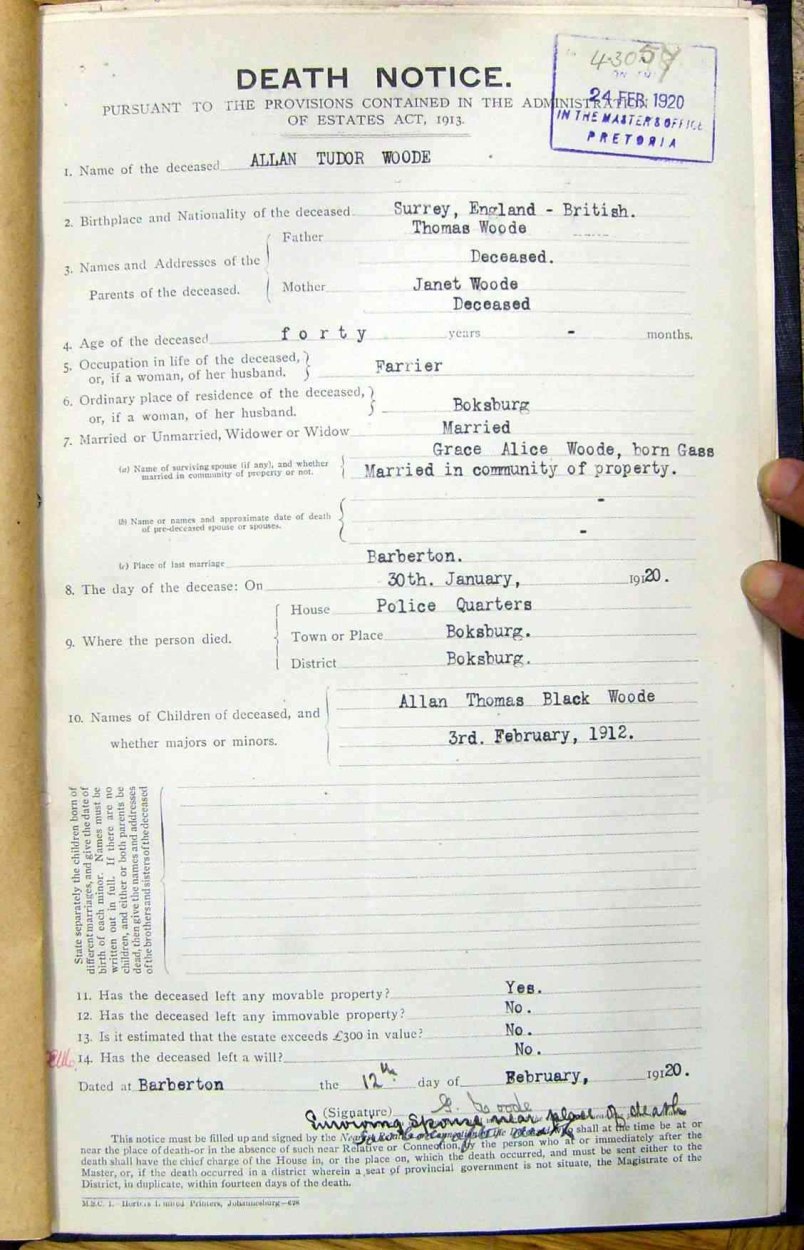 43057
24 FEB. 1920
IN THE MASTERS OFFICE
PRETORIA
DEATH NOTICE.
PURSUANT TO THE PROVISIONS CONTAINED IN THE ADMINISTRATION
OF ESTATES ACT, 1913.
1. Name of the deceased ALLAN TUDOR WOODE
2. Birthplace and Nationality of the deceased Surrey, England - British.
3. Names and Addresses of the Parents of the deceased.
Father Thomas Woode
Deceased.
Mother Janet Woode
Deceased
4. Age of the deceased forty years - months.
5. Occupation in life of the deceased, or, if a woman, of her husband. Farrier
6. Ordinary place of residence of the deceased, or, if a woman, of her husband. Boksburg
7. Married or Unmarried, Widower or Widow Married
(a) Name of surviving spouse (if any), and whether married in community of property or not. Grace Alice Woode, born Gass
Married in community of property.
(b) Name or names and approximate date of death of pre-deceased spouse or spouses. -
-
(c) Place of last marriage Barberton.
8. The day of the decease: On 30th. January, 19120.
9. Where the person died.
House Police Quarters
Town or Place Boksburg.
District Boksburg.
10. Names of Children of deceased, and whether majors or minors.
Allan Thomas Black Woode
3rd. February, 1912.
State separately the children born of
different marriages, and give the date of
birth of each minor. Names must be
written out in full. If there are no
children, and either or both parents be
dead, then give the names and addresses
of the brothers and sisters of the deceased
11. Has the deceased left any movable property? Yes.
12. Has the deceased left any immovable property? No.
13. Is it estimated that the estate exceeds £300 in value? No.
14. Has the deceased left a will? No.
Dated at Barberton the 12th day of February, 19120.
(Signature) G. Woode
Surviving Spouse near place of death
This notice must be filled up and signed by the Nearest Relative or Connection of the Deceased who shall at the time be at or
near the place of death-or in the absence of such near Relative or Connection, by the person who at or immediately after the
death shall have the chief charge of the House in, or the place on, which the death occurred, and must be sent either to the
Master, or, if the death occurred in a district wherein a seat of provincial government is not situate, the Magistrate of the
District, in duplicate, within fourteen days of the death.
Limited Printers, Johannesburg—628